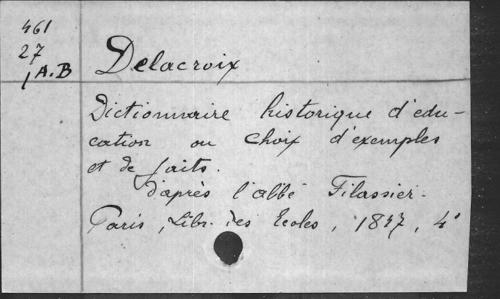 461
27
1 A.B
Delacroix
Dictionnaire historique d'edu-
cation ou choix d'exemples
et de faits.
d'après l'abbé Filassier.
Paris, Libr. des Ecoles, 1847, 4°